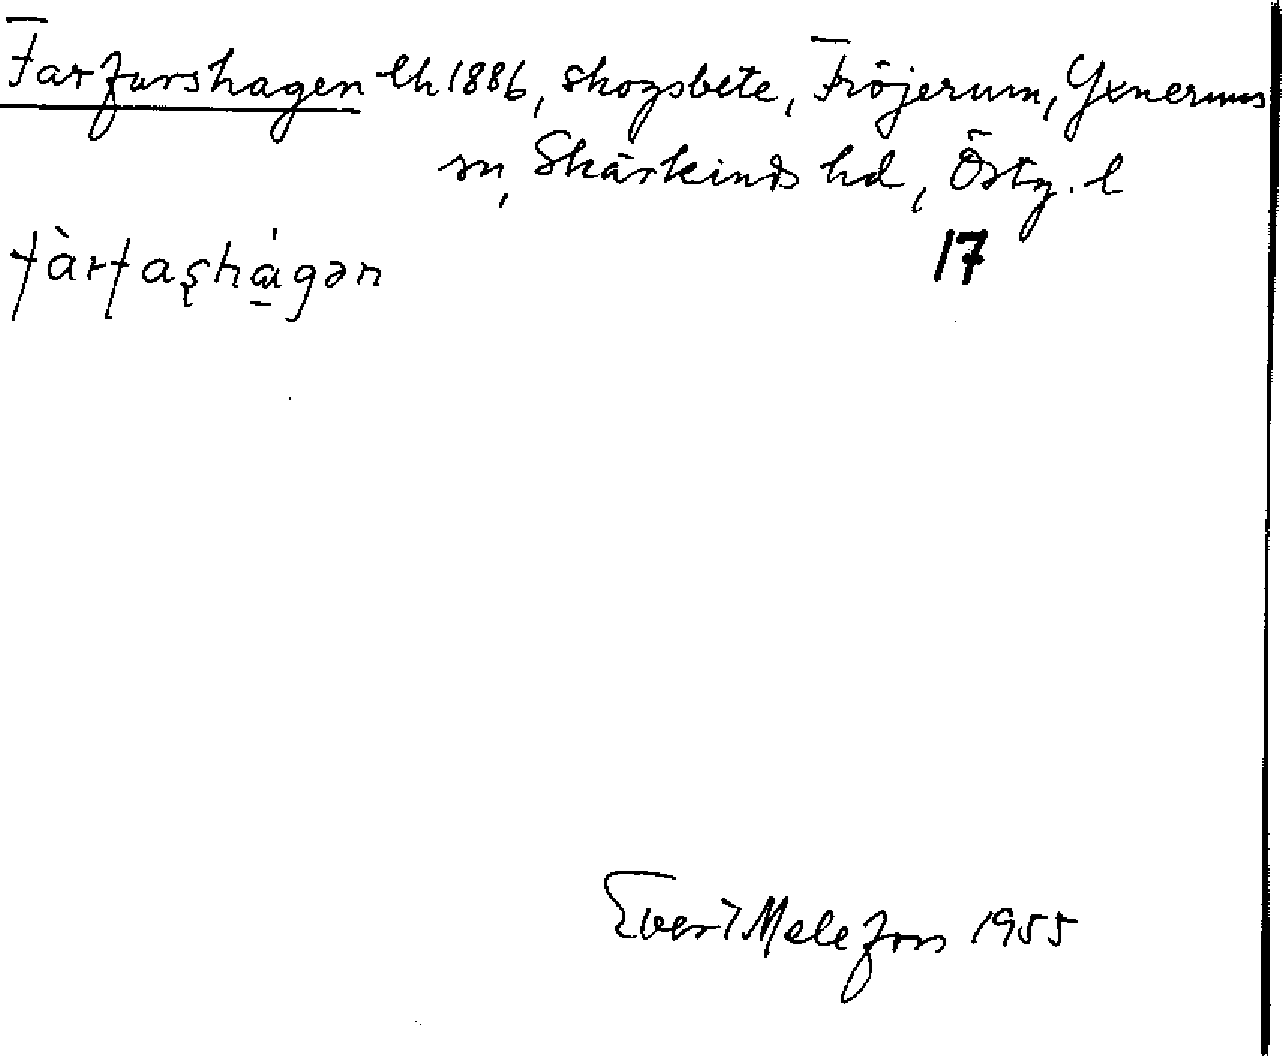 Farfarshagen lh 1886, skogsbete, Fröjerum, Yxnerums
sn, Skärkinds hd, Östg. l
fàrfaʂhá̱gən
17
Evert Melefors 1955